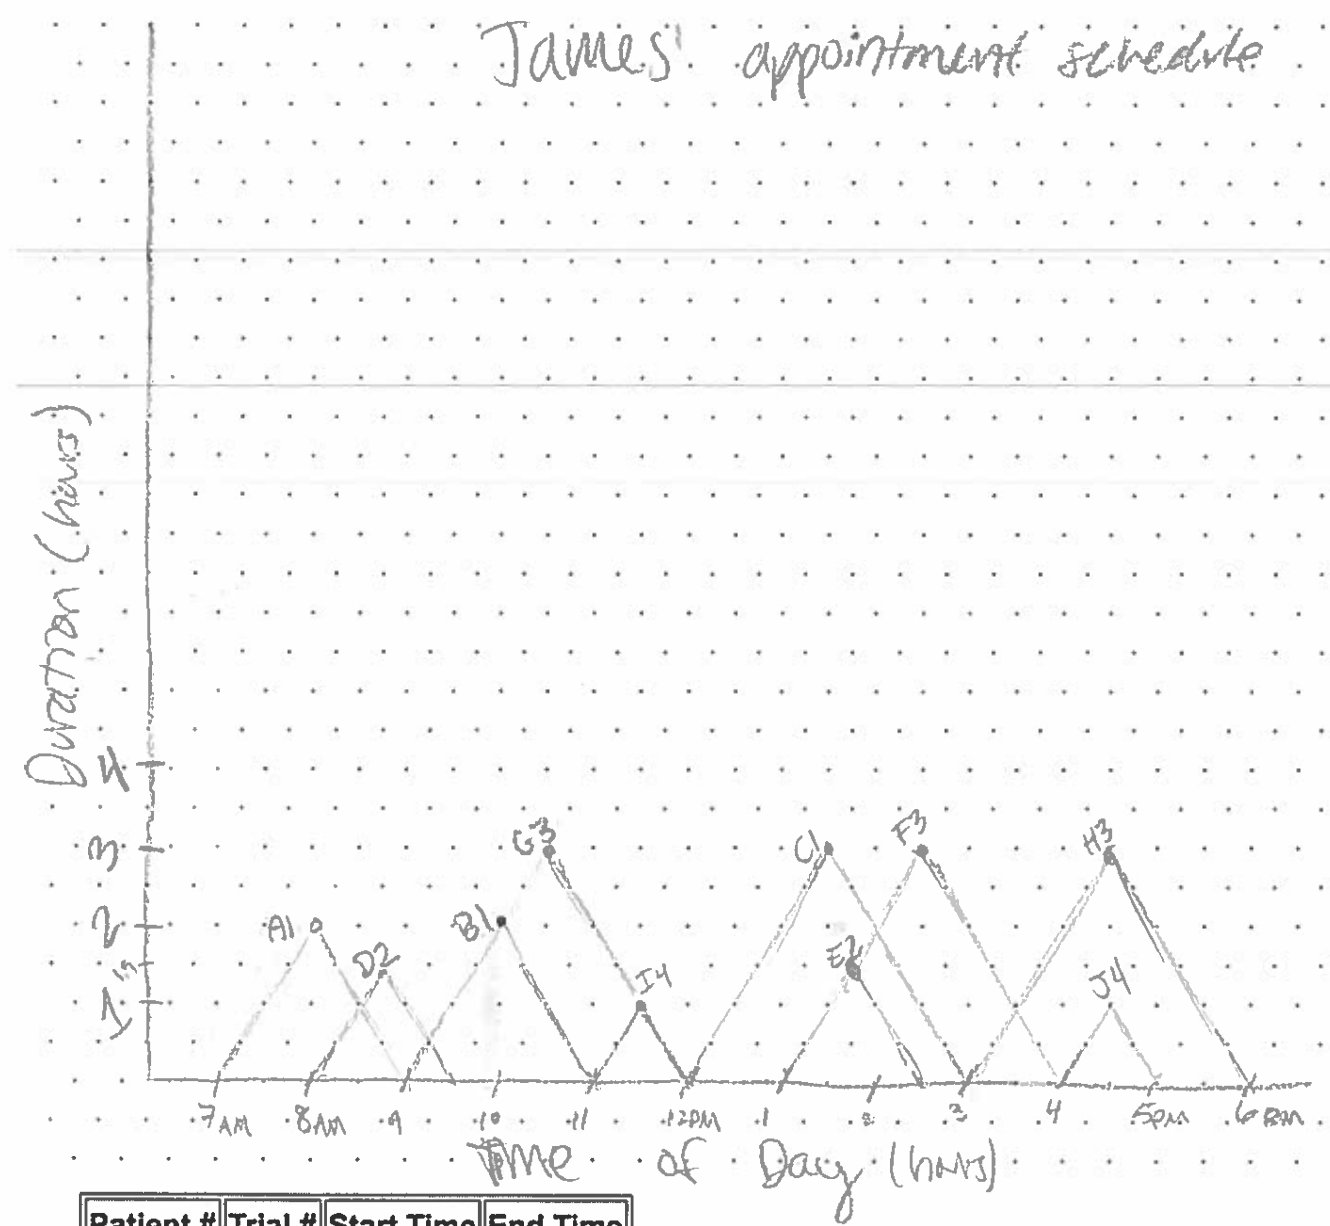 James' appointment schedule
Duration (hours)
4
3
2
1.5
1
G3
C1
F3
H3
A1
B1
D2
E2
I4
J4
7AM 8AM 9 10 11 12PM 1 2 3 4 5PM 6
Time of Day (hours)
Patient # Trial # Start Time End Time